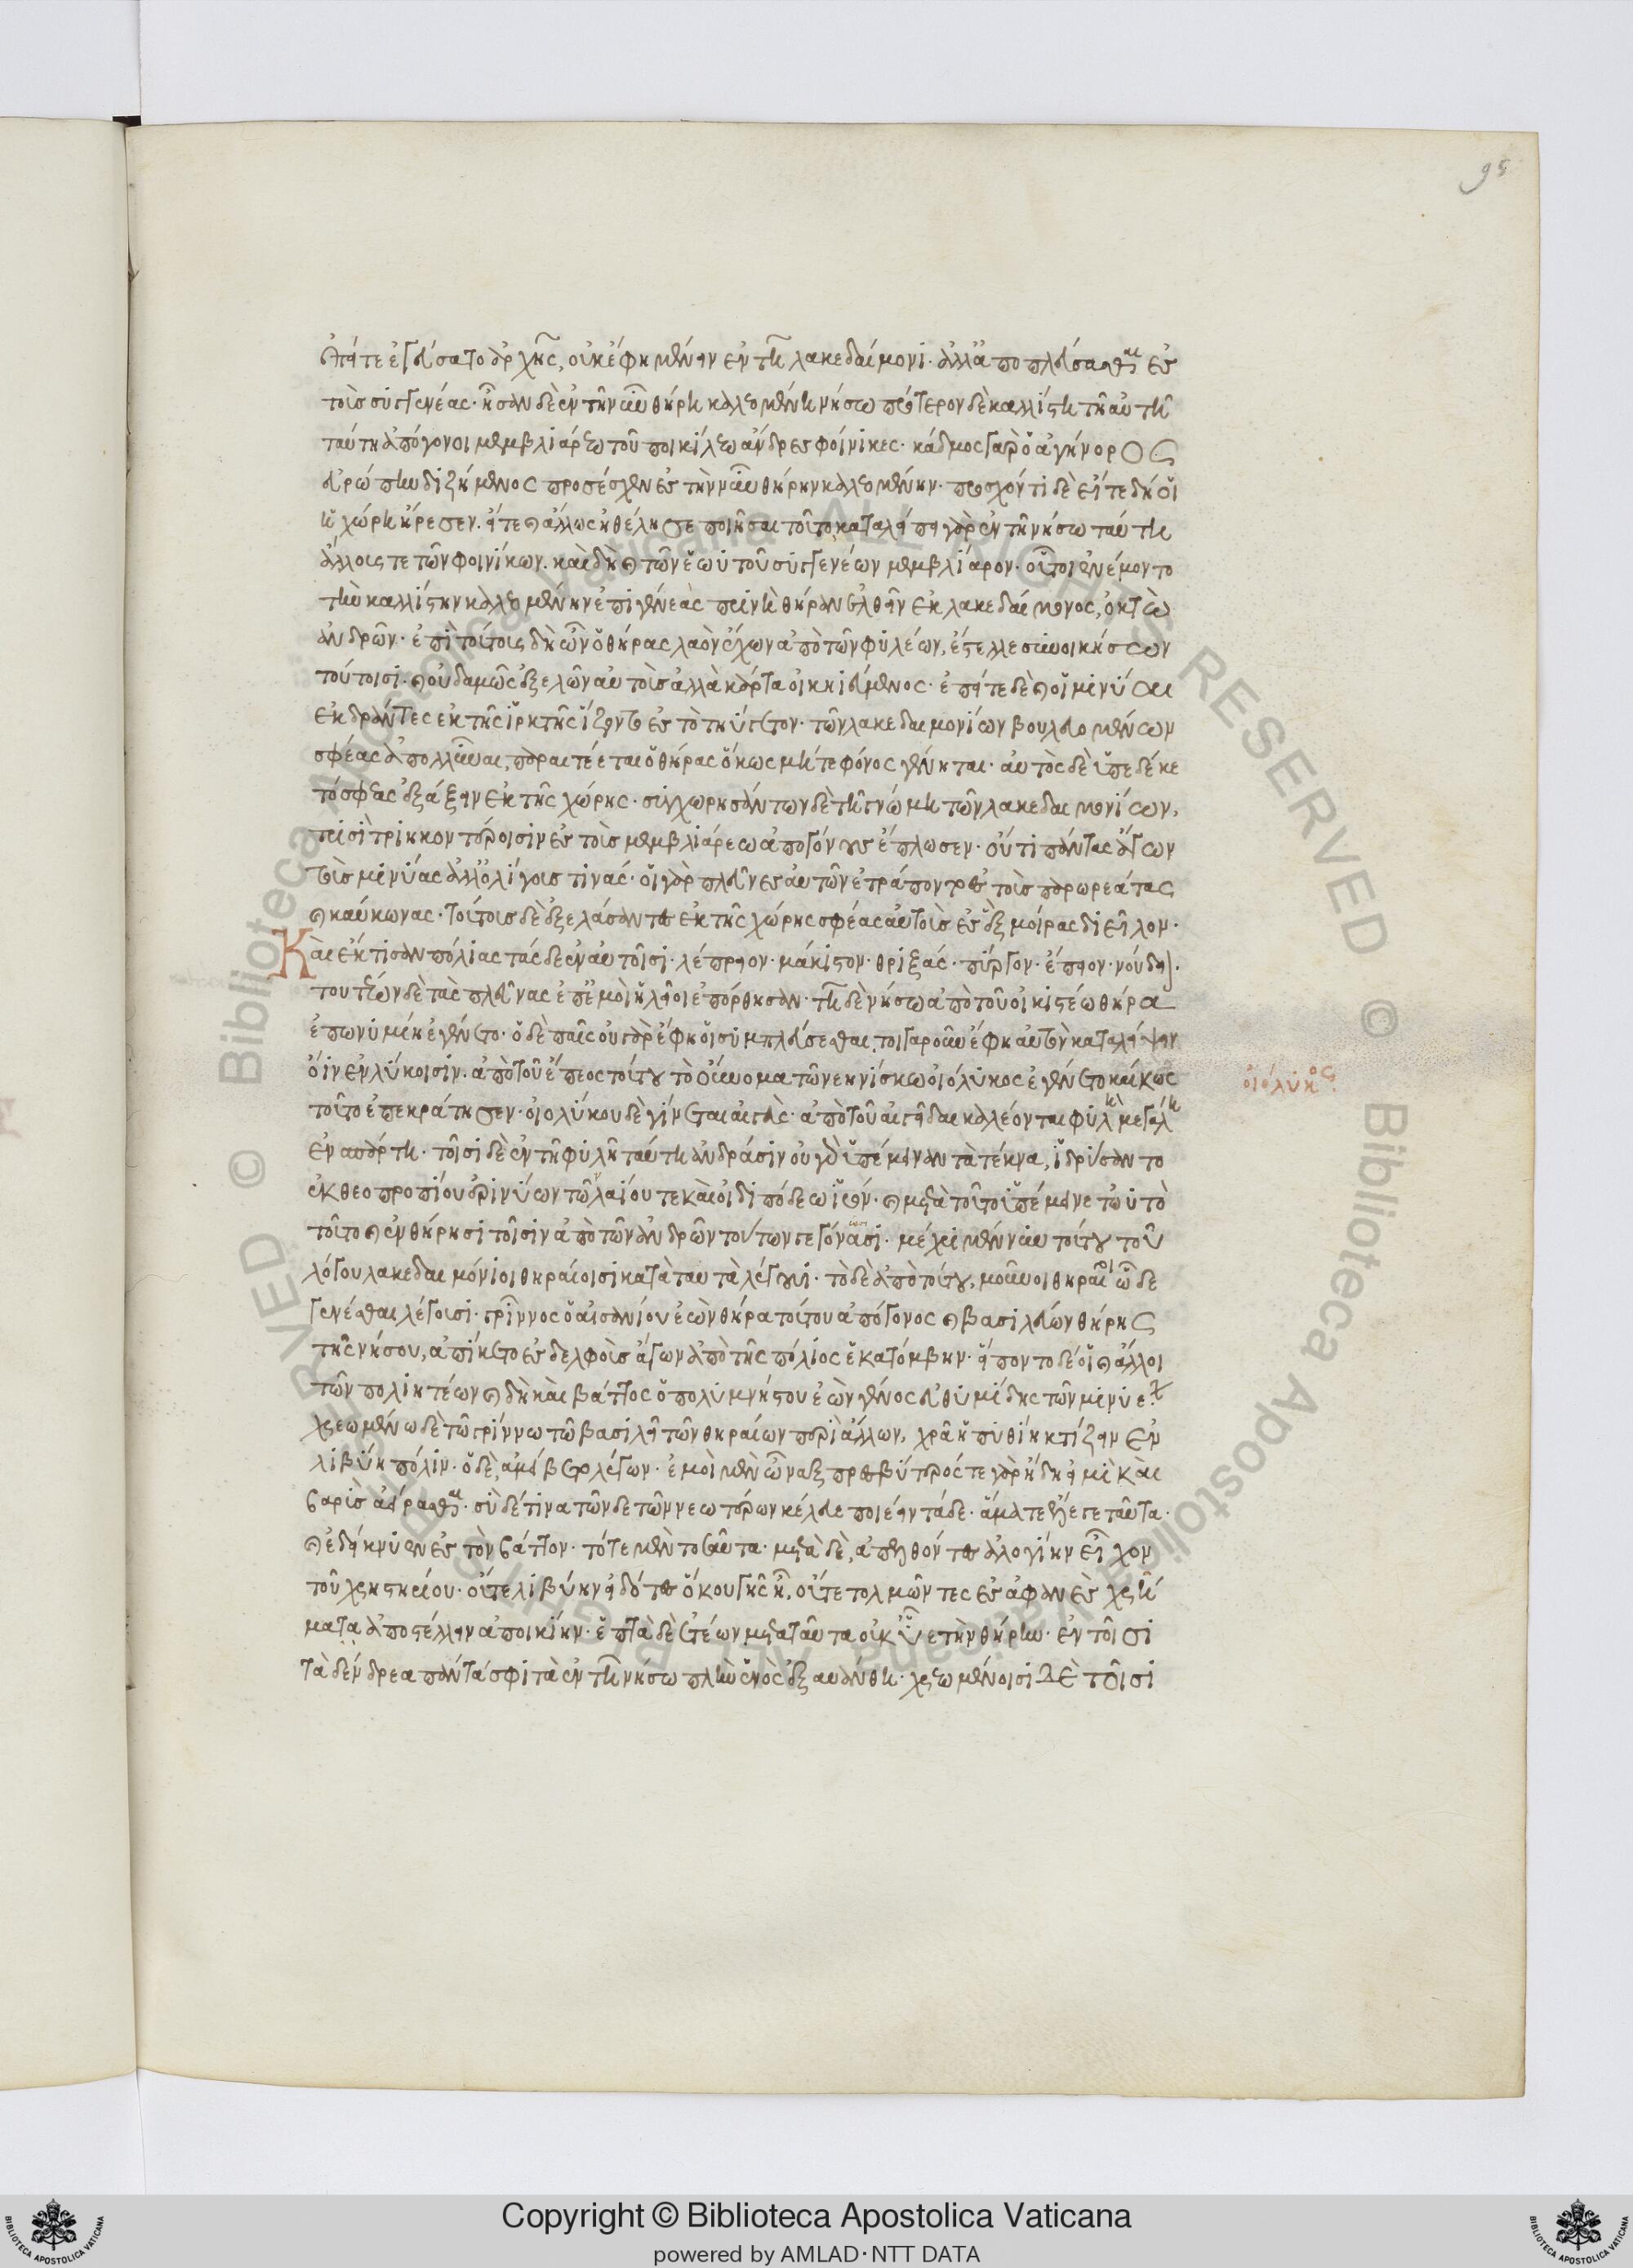 95
ἐπείτε ἐγεύσατο ἀρχῆς, οὐκ ἔφη μένειν ἐν τῆ λακεδαίμονι· ἀλλ' ἀποπλεύσεσθαι ἐς
τοὺς συγγενέας· ἦσαν δὲ ἐν τῆ νῦν θήρη καλεομένη νήσω πρότερον δὲ καλλίστη τῆ αὐτῆ
ταύτη ἀπόγονοι μεμβλιάρεω τοῦ ποικίλεω ἄνδρες φοίνικες· κάδμος γὰρ ὁ ἀγήνορος
εὐρώπην διζήμενος προσέσχεν ἐς τὴν νῦν θήρην καλεομένην· προσχόντι δὲ εἴτε δή οἱ
ἡ χώρη ἤρεσεν· εἴτε καὶ ἄλλως ἠθέλησε ποιῆσαι τοῦτο καταλείπει γὰρ ἐν τῆ νήσω ταύτη
ἄλλους τε τῶν φοινίκων· καὶ δὴ καὶ τῶν ἑωυτοῦ συγγενέων μεμβλίαρον· οὗτοι ἐνέμοντο
τὴν καλλίστην καλεομένην ἐπὶ γενεὰς πρὶν ἢ θήραν ἐλθεῖν ἐκ λακεδαίμονος, ὀκτὼ
ἀνδρῶν· ἐπὶ τούτους δὴ ὦν ὁ θήρας λαὸν ἔχων ἀπὸ τῶν φυλέων, ἔστελλε συνοικήσων
τούτοισι· καὶ οὐδαμῶς ἐξελῶν αὐτοὺς ἀλλὰ κάρτα οἰκηιεύμενος· ἐπείτε δὲ καὶ οἱ μινύαι
ἐκδράντες ἐκ τῆς ἱρκτῆς ἵζοντο ἐς τὸ τηΰγετον· τῶν λακεδαιμονίων βουλευομένων
σφέας ἀπολλῦναι, παραιτέεται ὁ θήρας ὅκως μήτε φόνος γένηται· αὐτός δὲ ὑπεδέκε
τό σφεας ἐξάξειν ἐκ τῆς χώρης· συγχωρησάντων δὲ τῆ γνώμη τῶν λακεδαιμονίων,
τρισὶ τριηκοντόροισιν ἐς τοὺς μεμβλιάρεω ἀπογόνους ἔπλωσεν· οὔτι πάντας ἄγων
τοὺς μινύας ἀλλ' ὀλίγους τινάς· οἱ γὰρ πλεῦνες αὐτῶν ἐτράποντο ἐς τοὺς παρωρεάτας
καὶ καύκωνας· τούτους δὲ ἐξελάσαντες ἐκ τῆς χώρης σφέας αὐτοὺς ἐς ἓξ μοίρας διεῖλον·
Καὶ ἔκτισαν πόλιας τάσδε ἐν αὐτοῖσι· λέπρειον· μάκιστον· θριξάς· πύργον· ἔπειον· νούδειον·
τουτέων δὲ τὰς πλεῦνας ἐπ' ἐμὸ ἠλεῖοι ἐπόρθησαν· τῆ δὲ νήσω ἀπὸ τοῦ οἰκιστέω θήρα
ἐπωνυμίη ἐγένετο· ὁ δὲ παῖς οὐ γὰρ ἔφη οἱ συμπλεύσεσθαι, τοιγαροῦν ἔφη αὐτὸν καταλείψειν
ὄϊν ἐν λύκοισιν· ἀπὸ τοῦ ἔπεος τούτου τὸ οὔνομα τῶ νεηνίσκω οἰόλυκος ἐγένετο καί κως
οἰόλυκος
τοῦτο ἐπεκράτησεν· οἰολύκου δὲ γίνεται αἰγεὺς· ἀπὸ τοῦ αἰγεῖδαι καλέονται φυλὴ μεγάλη
ἐν σπάρτη· τοῖσι δὲ ἐν τῆ φυλῆ ταύτη ἀνδράσιν οὐ γὰρ ὑπέμειναν τὰ τέκνα, ἱδρύσαντο
ἐκ θεοπροπίου ἐρινύων τῶν λαίου τε καὶ οἰδιπόδεω ἱρόν· καὶ μετὰ τοῦτο ὑπέμεινε τὠυτὸ
τοῦτο καὶ ἐν θήρησι τοῖσιν ἀπὸ τῶν ἀνδρῶν τούτων γεγόνασι· μέχρι μέν νυν τούτου τοῦ
λόγου λακεδαιμόνιοι θηραίοισι κατὰ ταυτὰ λέγουσι· τὸ δὲ ἀπὸ τούτου, μοῦνοι θηραῖοι ὧδε
γενέσθαι λέγουσι· γρῖννος ὁ αἰσανίου ἐὼν θήρα τούτου ἀπόγονος καὶ βασιλεύων θήρης
τῆς νήσου, ἀπίκετο ἐς δελφοὺς ἄγων ἀπὸ τῆς πόλιος ἑκατόμβην· εἵποντο δέ οἱ καὶ ἄλλοι
τῶν πολιητέων καὶ δὴ καὶ βάττος ὁ πολυμνήστου ἐὼν γένος εὐθυμίδης τῶν μινυέων·
χρεωμένω δὲ τῶ γρίννω τῶ βασιλεῖ τῶν θηραίων περὶ ἄλλων, χρᾶ ἡ πυθίη κτίζειν ἐν
λιβύη πόλιν· ὁ δὲ, ἀμείβετο λέγων· ἐμοὶ μὲν ὦναξ πρεσβύτερός τε γὰρ ἤδη εἰμὶ καὶ
βαρὺς ἀείρασθαι· σὺ δέ τινα τῶνδε τῶν νεωτέρων κέλευε ποιέειν τάδε· ἅμα τε ἔλεγε ταῦτα·
καὶ ἐδείκνυεν ἐς τὸν βάττον· τότε μὲν τοσαῦτα· μετὰ δὲ, ἀπελθόντες ἀλογίην εἶχον
τοῦ χρηστηρίου· οὔτε λιβύην εἰδότες ὅκου γῆς ἦ, οὔτε τολμῶντες ἐς ἀφανὲς χρῆ
ματα ἀποστέλλειν ἀποικίην· ἑπτὰ δὲ ἐτέων μετὰ ταῦτα οὐκ ὗε τὴν θήρην· ἐν τοῖσι
τὰ δένδρεα πάντα σφι τὰ ἐν τῆ νήσω πλὴν ἑνὸς ἐξαυάνθη· χρεωμένοισι δὲ τοῖσι
Copyright © Biblioteca Apostolica Vaticana
powered by AMLAD·NTT DATA